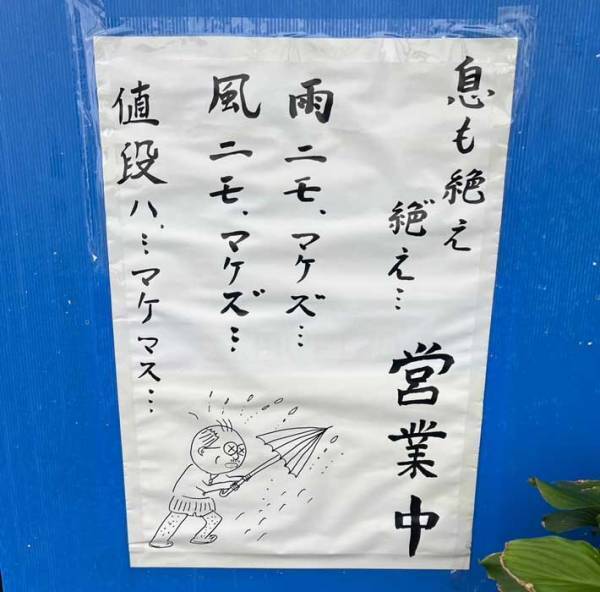 息も絶え
絶え…
営業中
雨ニモ、マケズ…
風ニモ、マケズ…
値段ハ、…マケマス…